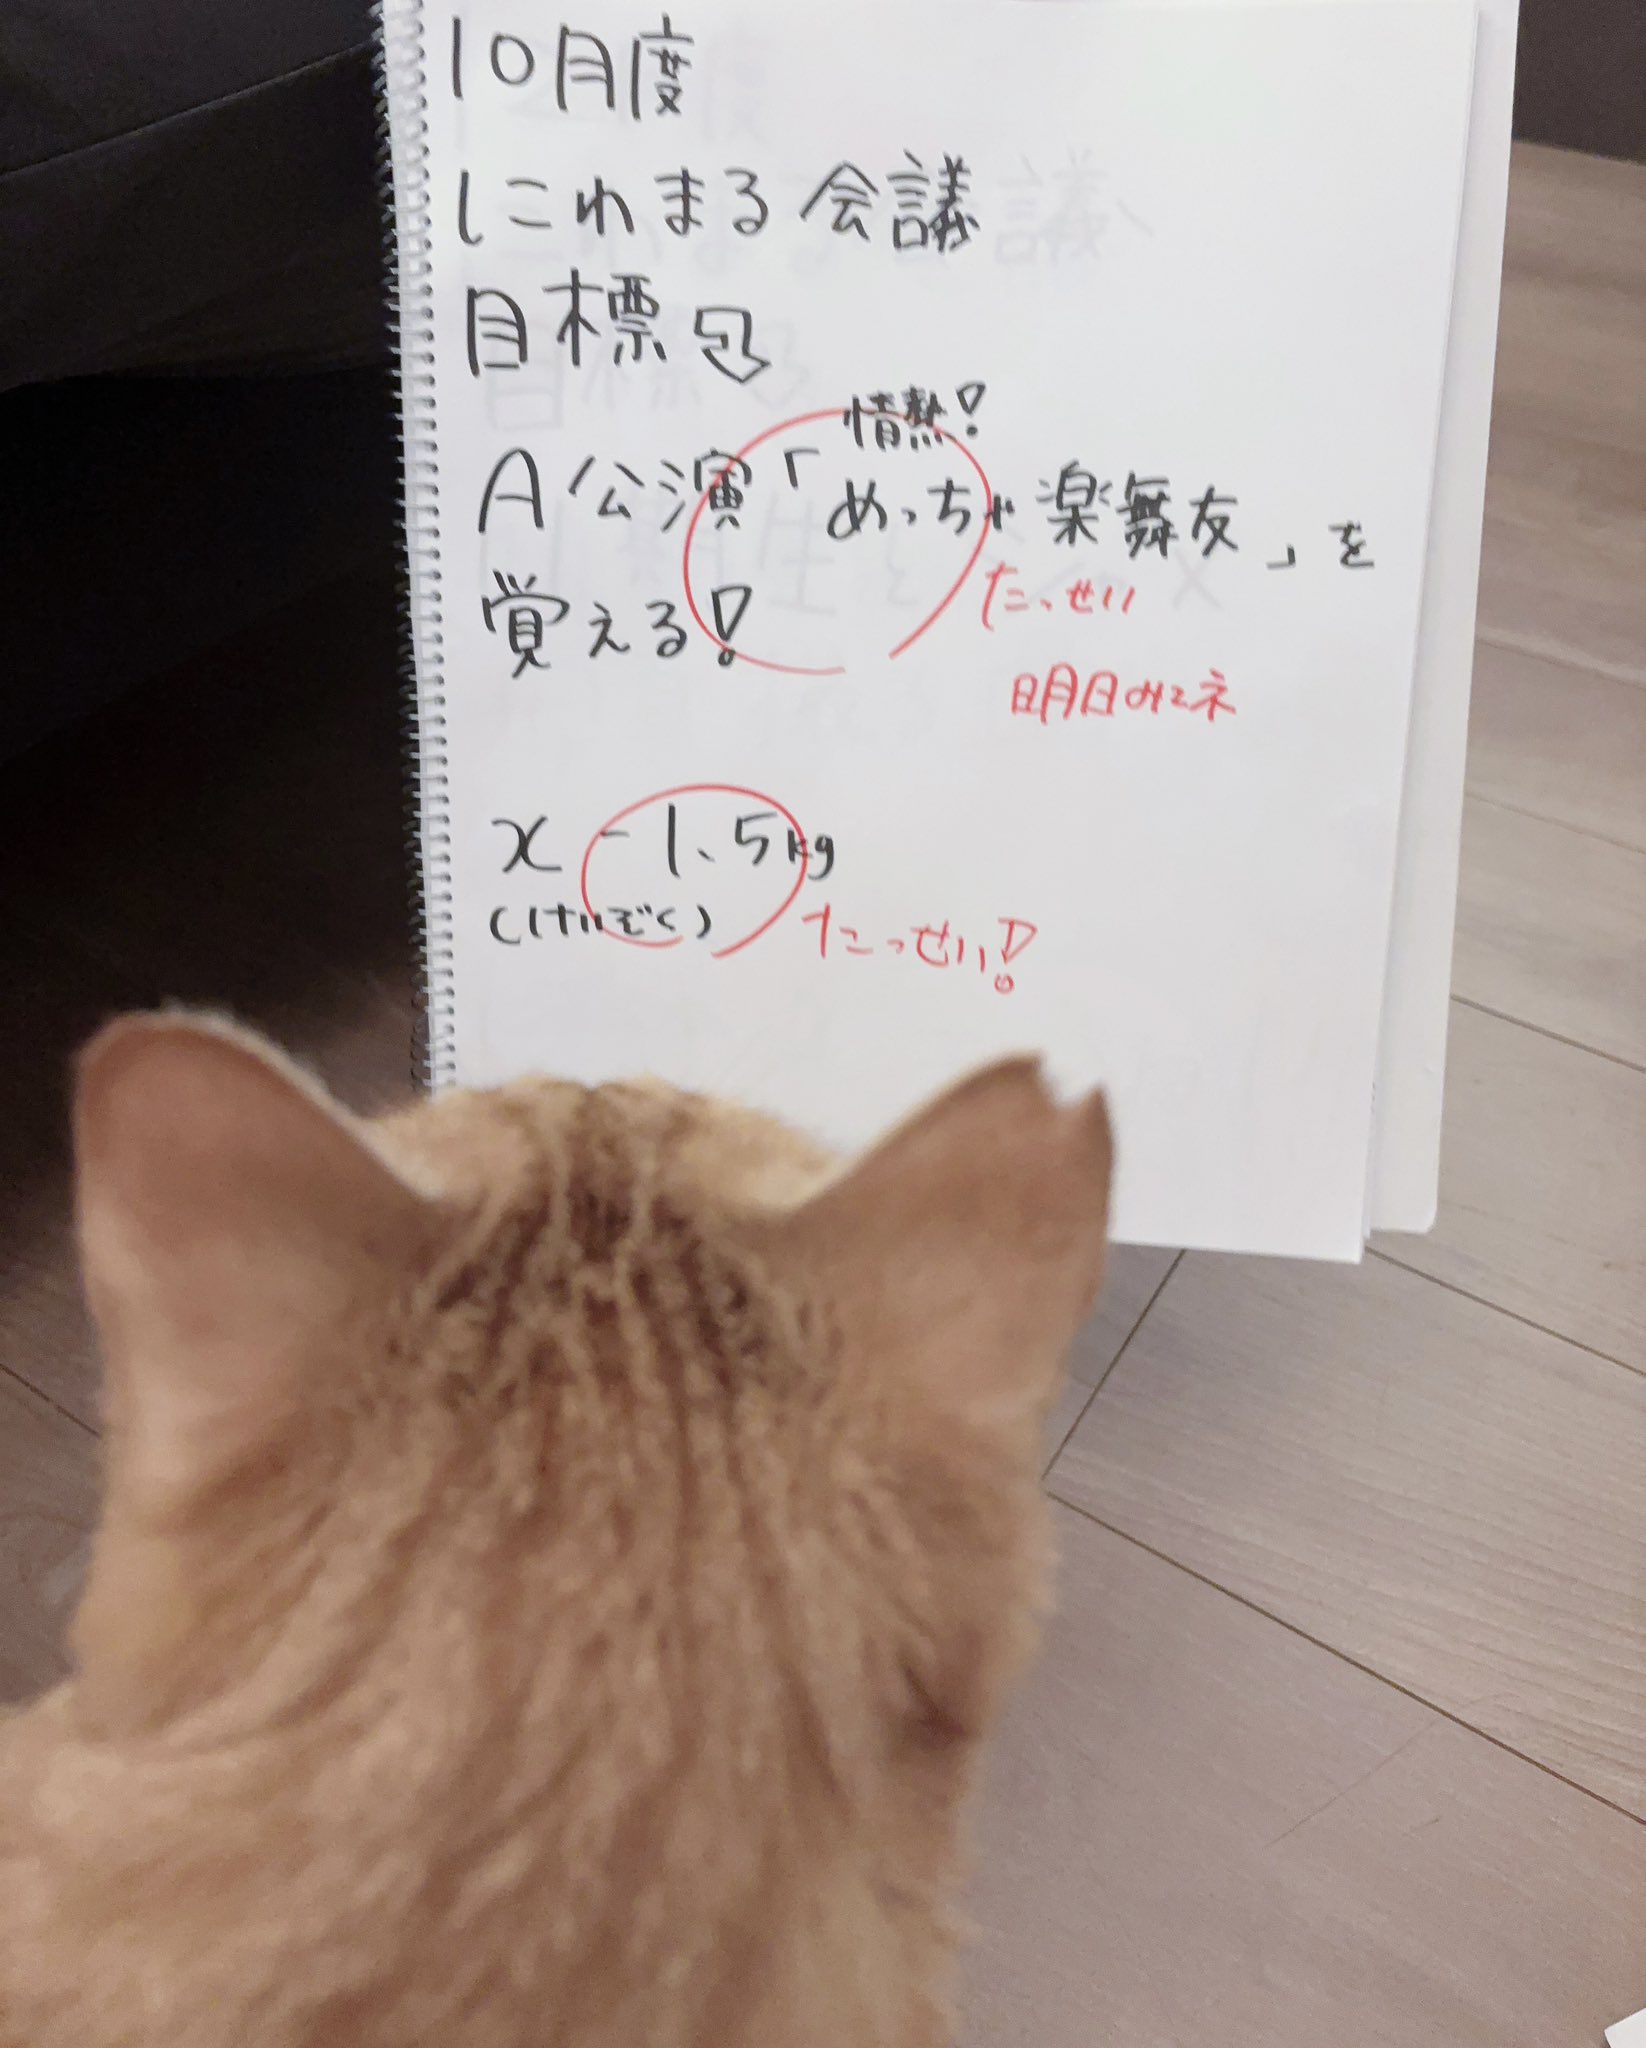 10月度
にわまる会議
目標
情熱!
A公演「めっちゃ楽舞友」を
覚える!
たっせい
明日みてネ
x -1.5kg
(けいぞく)
たっせい!